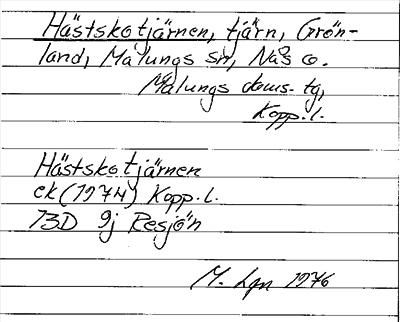 Hästskotjärnen, tjärn, Grön-
land, Malungs sn, Nås o.
Malungs doms. tg,
Kopp. l.
Hästskotjärnen
ek (1974) Kopp. l.
13D 9j Resjön
M. 1976